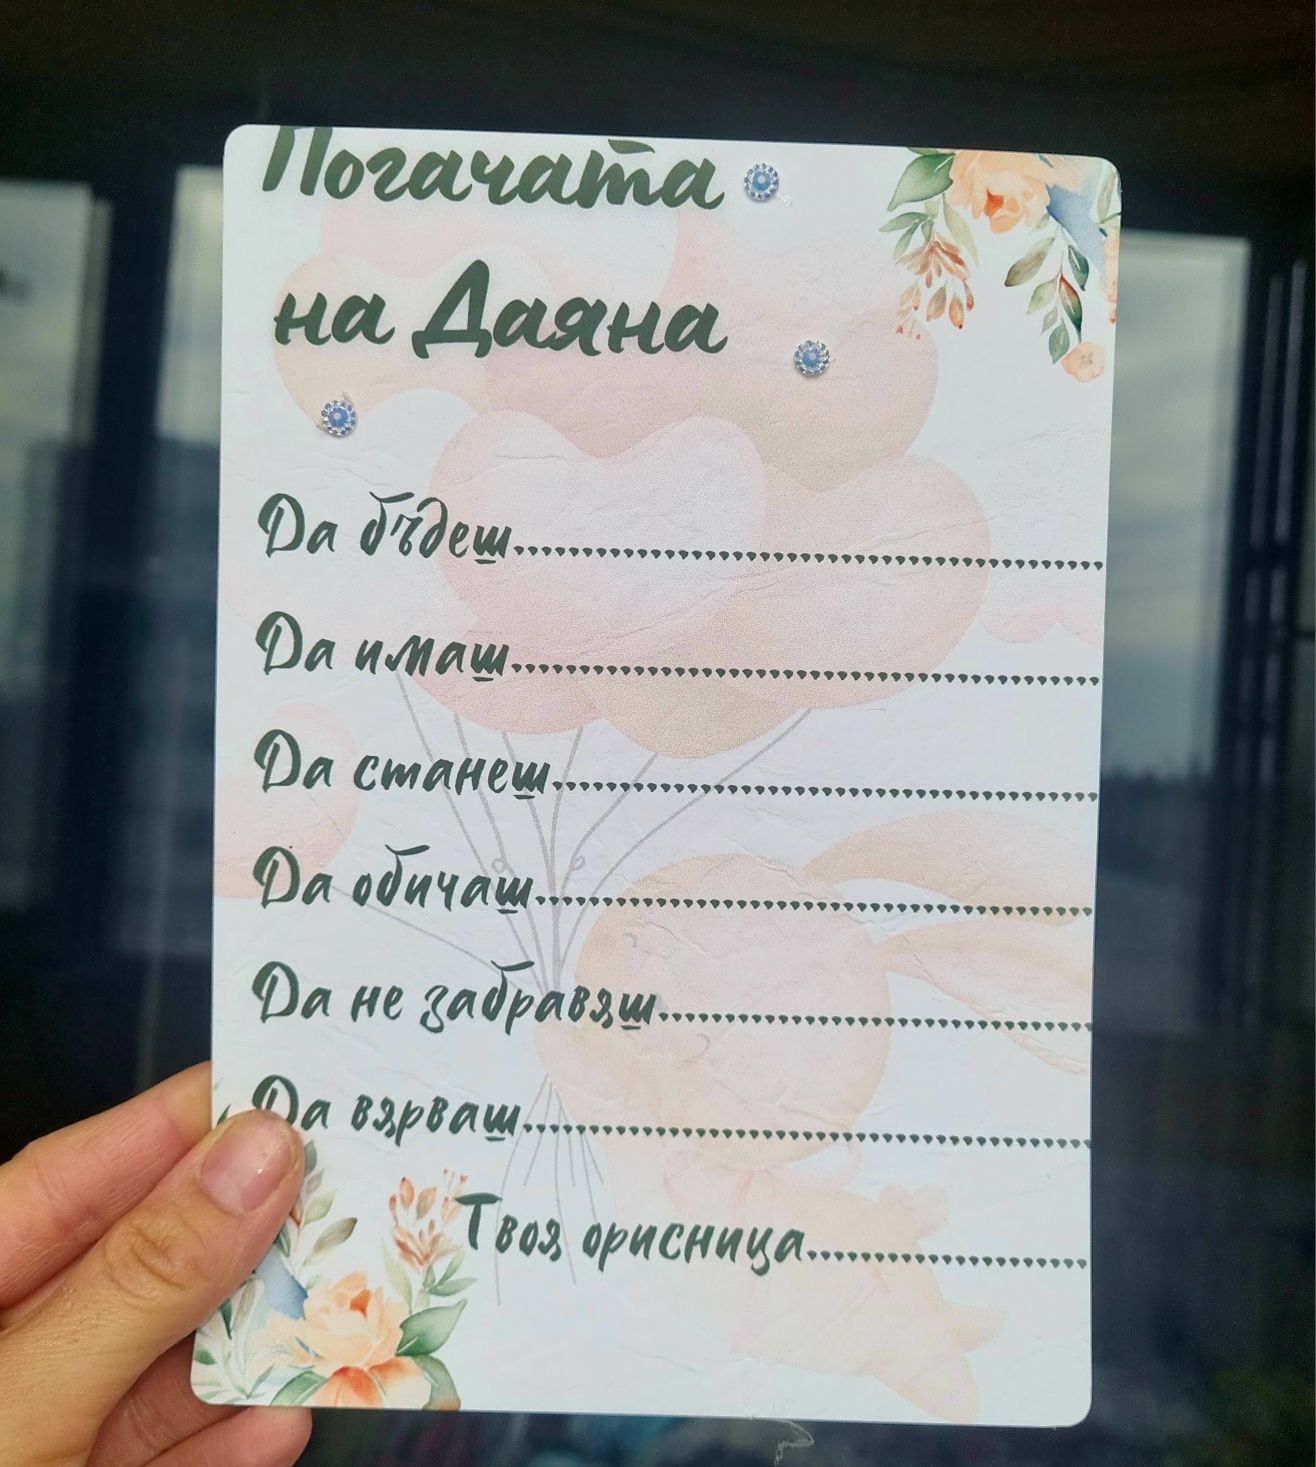 Погачата
на Даяна
Да бъдеш..........................................
Да имаш..........................................
Да станеш.......................................
Да обичаш........................................
Да не забравяш...............................
Да вярваш........................................
Твоя орисница....................